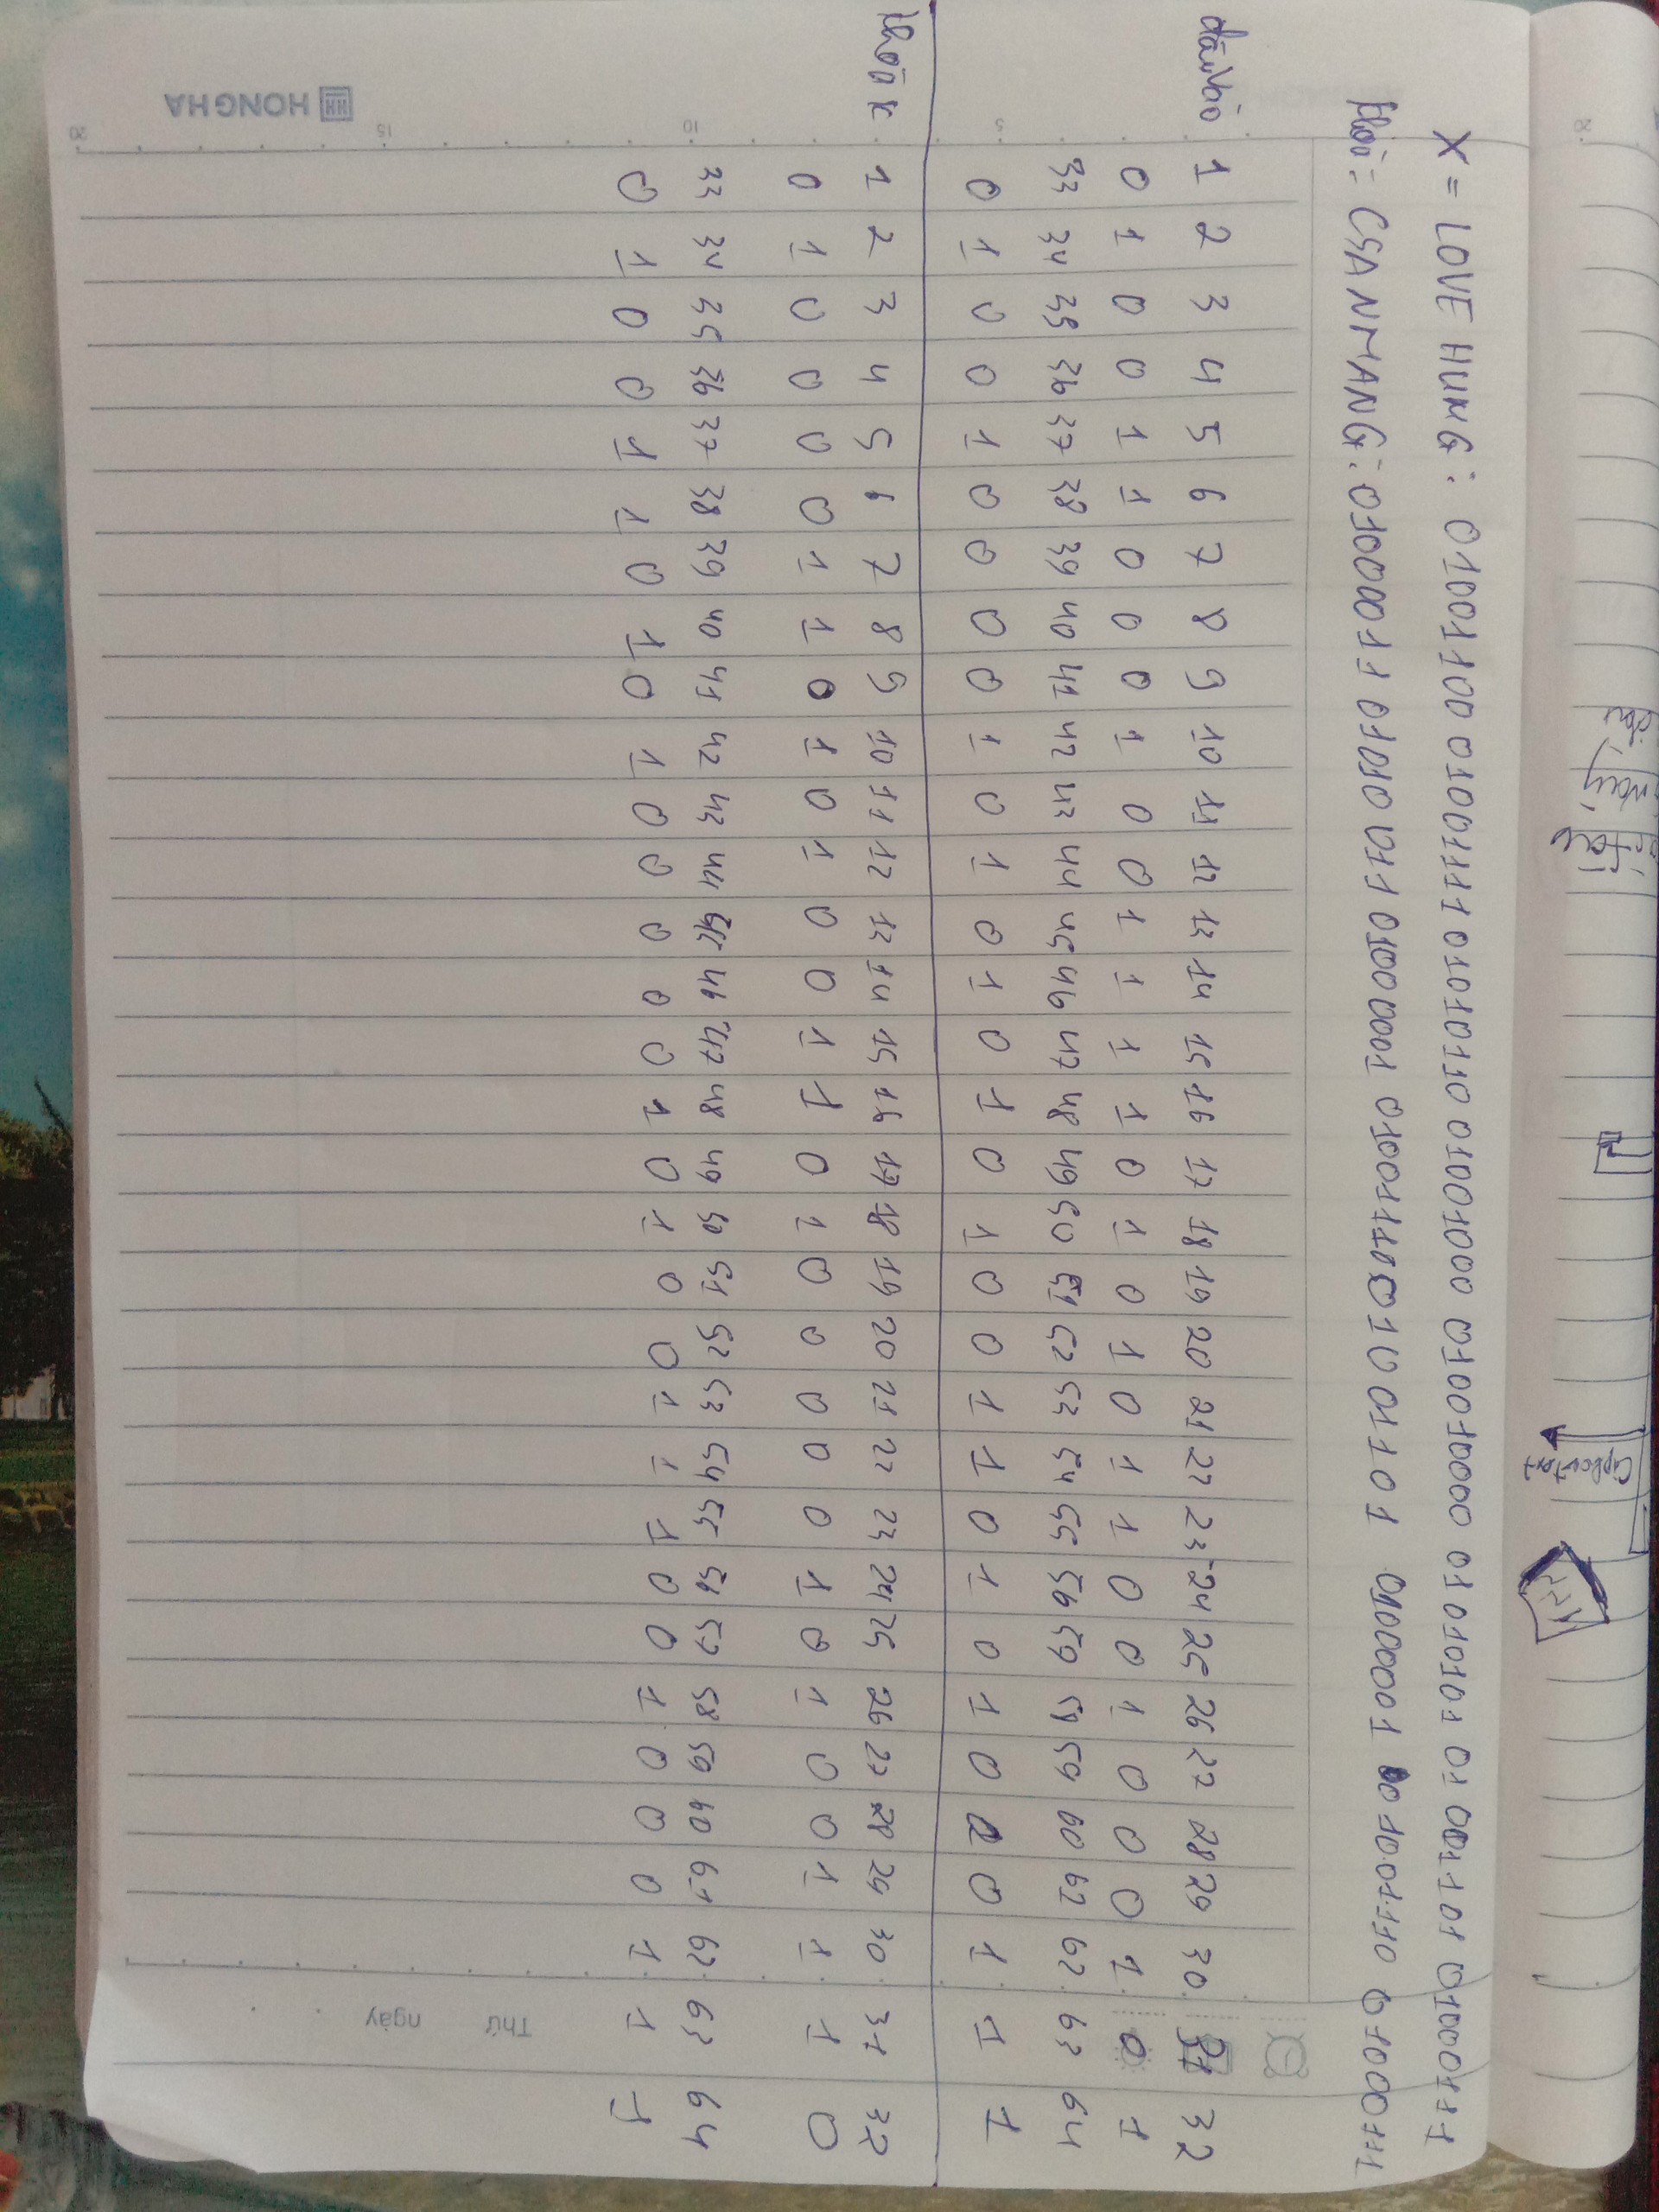 X = LOVE HUMG : 01001100 01001111 01010110 01001000 010010000 01010101 01001101 01000111
khoá : CSANMANG : 01000011 01010011 01000001 01001110 01001101 01000001 01001110 01000111
đầu vào 1 2 3 4 5 6 7 8 9 10 11 12 13 14 15 16 17 18 19 20 21 22 23 24 25 26 27 28 29 30 31 32
0 1 0 0 1 1 0 0 0 1 0 0 1 1 1 1 0 1 0 1 0 1 1 0 0 1 0 0 0 1 0 1
33 34 35 36 37 38 39 40 41 42 43 44 45 46 47 48 49 50 51 52 53 54 55 56 59 58 59 60 62 62 63 64
0 1 0 0 1 0 0 0 0 1 0 1 0 1 0 1 0 1 0 0 1 1 0 1 0 1 0 0 0 1 1 1
khoá K 1 2 3 4 5 6 7 8 9 10 11 12 13 14 15 16 17 18 19 20 21 22 23 24 25 26 27 28 29 30 31 32
0 1 0 0 0 0 1 1 0 1 0 1 0 0 1 1 0 1 0 0 0 0 0 1 0 1 0 0 1 1 1 0
33 34 35 36 37 38 39 40 41 42 43 44 45 46 47 48 49 50 51 52 53 54 55 56 57 58 59 60 61 62 63 64
0 1 0 0 1 1 0 1 0 1 0 0 0 0 0 1 0 1 0 0 1 1 1 0 0 1 0 0 0 1 1 1
HONG HA
20 15 10 5
20
Thứ ngày